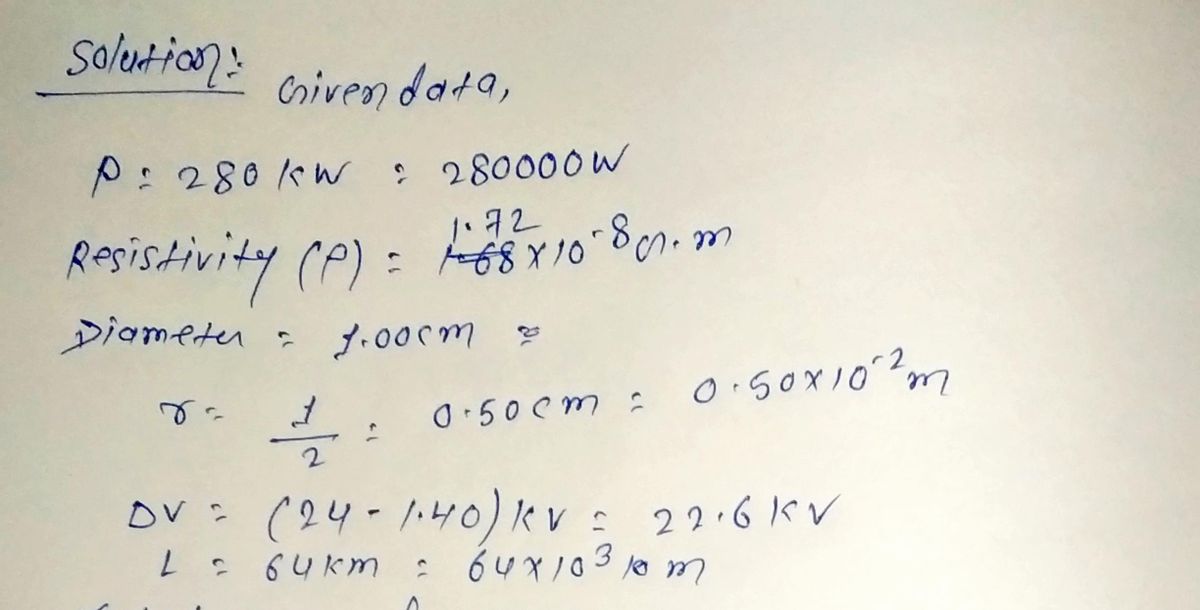 Solution:
Given data,
P = 280 kW = 280000W
Resistivity (ρ) = 1.72 × 10^-8 Ω.m
Diameter = 1.00cm =
r = 1/2 = 0.50cm = 0.50×10^-2 m
DV = (24 - 1.40) kV = 22.6 kV
L = 64km = 64×10^3 m